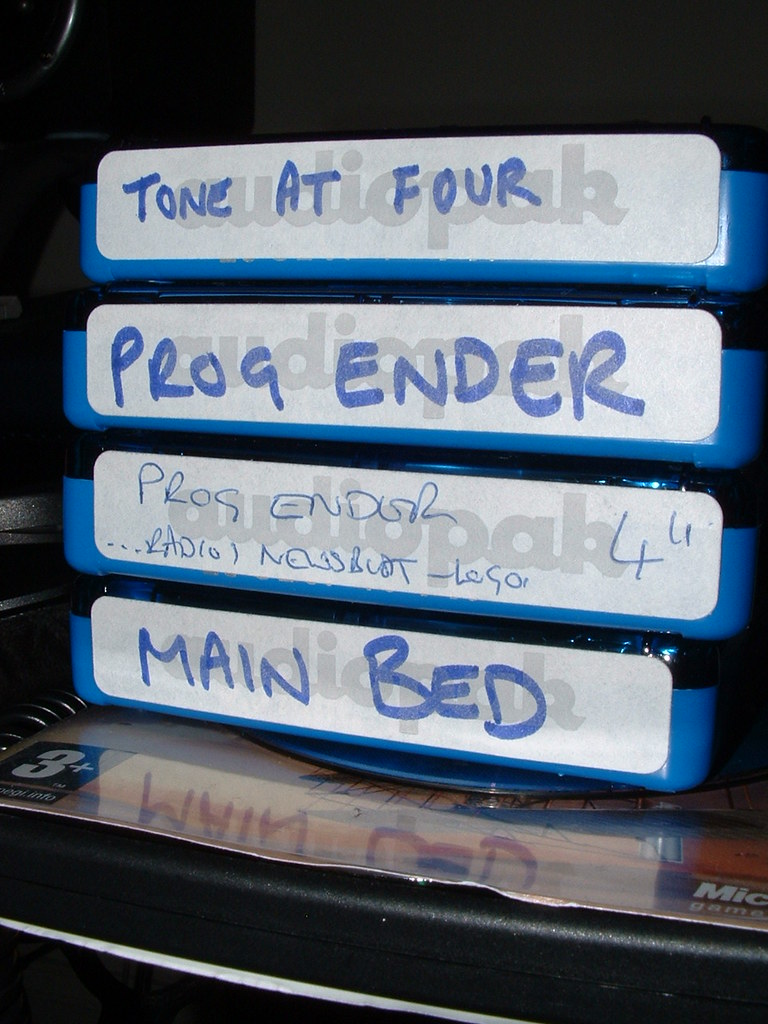 TONE AT FOUR
audiopak
PROG ENDER
audiopak
PROG ENDER
...RADIO 1 NEWSBEAT - LOGO.
4"
audiopak
MAIN BED
audiopak
3+
pegi.info
MAIN BED
Mic
game